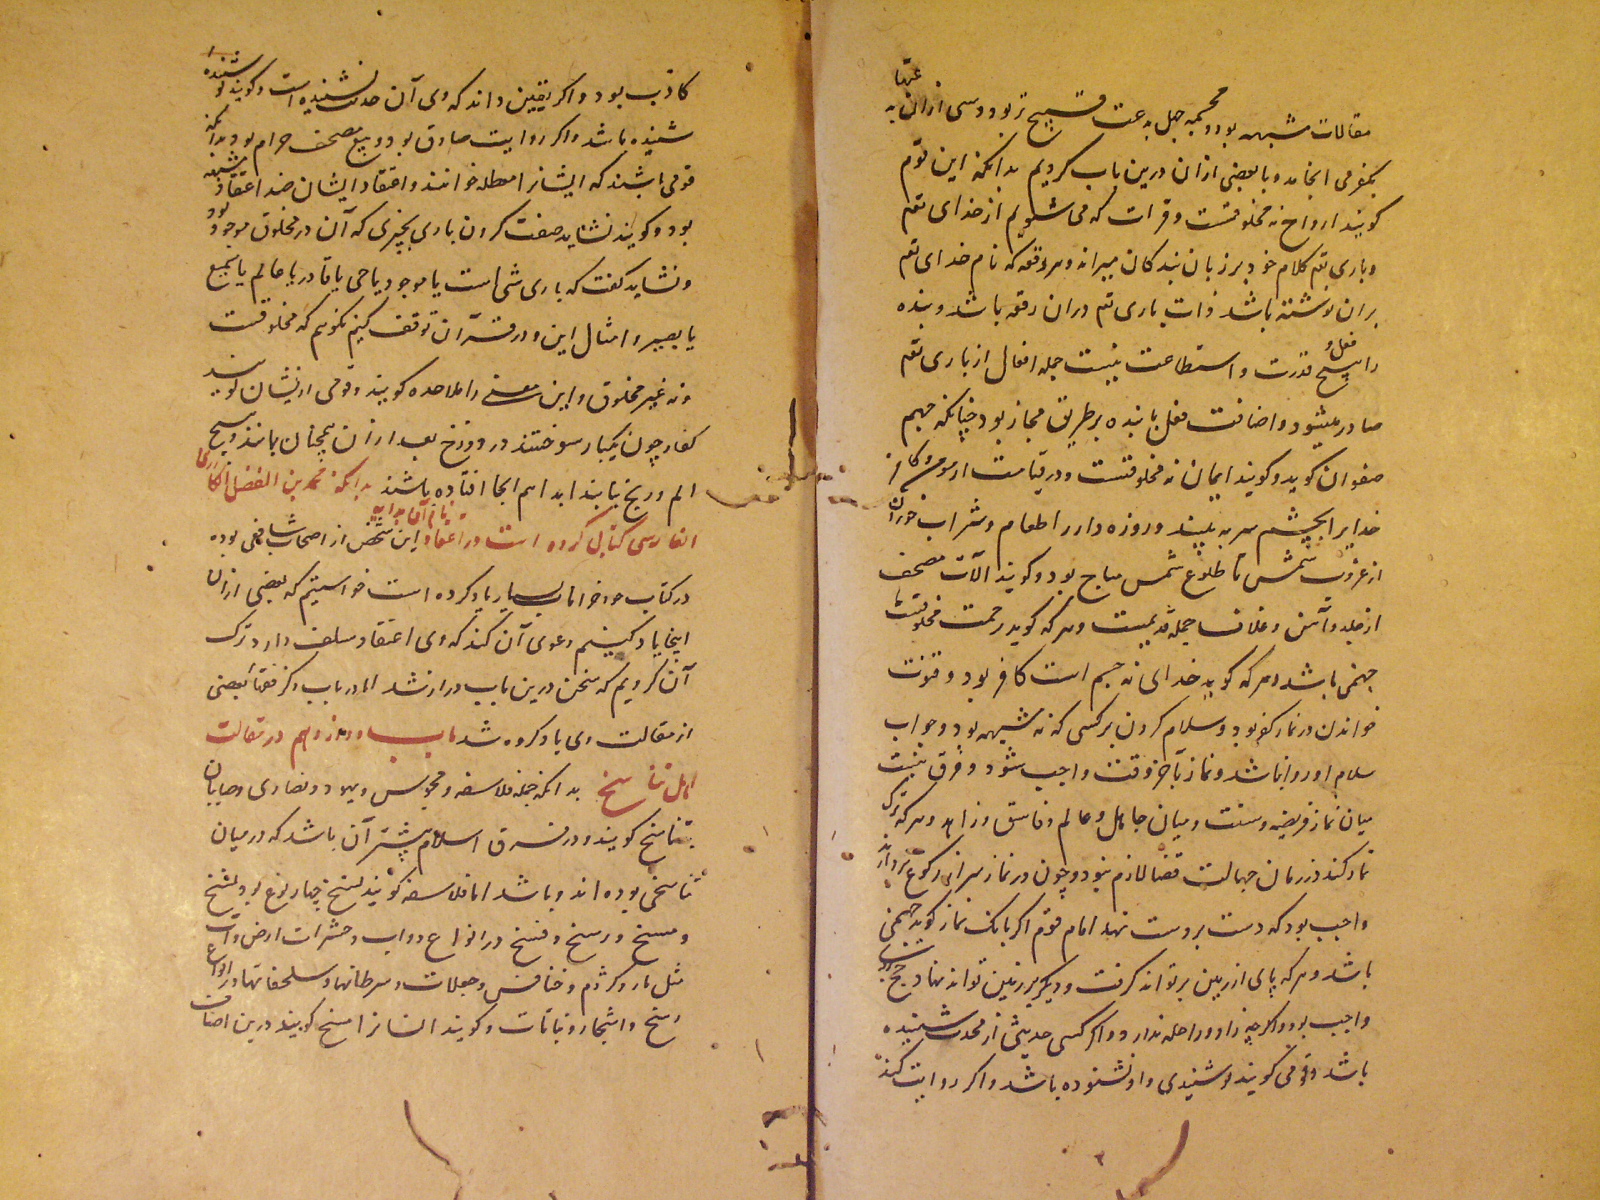 مقالات مشبهه بود و مجسمه جمله بدعت قبیح تر بود و سی از ان به
بکفر می انجامد و ما بعضی از ان درین باب کردیم بدانکه این قوم
کویند ارواح نه مخلوقست و قرات که می شنویم از خدای تعم
و باری تعم کلام خود بر زبان بندکان میراند و هر رقعه که نام خدای تعم
بران نوشته باشد ذات باری تعم دران رقعه باشد و بنده
را هیچ فعل و قدرت و استطاعت نیست جمله افعال از باری تعم
صادر میشود و اضافت فعل با بنده بر طریق مجاز بود چنانکه جهم
صفوان کوید و کویند ایمان نه مخلوقست و در قیامت از مومن و کافر
خدایرا بچشم سر به بینند و روزه دار را طعام و شراب خوردن
از غروب شمس تا طلوع شمس مباح بود و کویند آلات مصحف
از جلد و آهن و غلاف جمله قدیمست و هر که کوید رحمت مخلوقست
جهنمی باشد و هر که کوید خدای نه جسم است کافر بود و قنوت
خواندن در نماز کفر بود و سلام کردن بر کسی که نه مشبهی بود و جواب
سلام او روا نباشد و نماز بآخر وقت واجب شود و فرق نیست
میان نماز فریضه و سنت و میان جاهل و عالم و فاسق و زاهد و هر که ترک
نماز کند در زمان جهالت قضا لازم نبود و چون در نماز سر از رکوع بردارند
واجب بود که دست بر دست نهد امام قوم اکر بانک نماز کوید جهنمی
باشد و هر که پای از زمین برتواند کرفت و دیکر بر زمین تواند نهاد حج بر وی
واجب بود و اکرچه زاد و راحله ندارد و اکر کسی حدیثی از محدث شنیده
باشد و قومی کویند نشنیدی و او شنوده باشد و اکر روایت کند
کاذب بود و اکر یقین داند که وی آن حدیث نشنیده است و کویند تو شنیده
شنیده باشد و اکر روایت صادق بود و بیع مصحف حرام بود بدانکه
قومی باشند که ایشانرا معطله خوانند و اعتقاد ایشان ضد اعتقاد مشبهه
بود و کویند نشاید صفت کردن باری بچیزی که آن در مخلوق موجود بود
و نشاید کفت که باری شی است یا موجود یا حی یا قادر یا عالم یا سمیع
یا بصیر و امثال این و در قرآن توقف کنیم نکوییم که مخلوقست
و نه غیر مخلوق و این معنی را ملاحده کویند و قومی از ایشان کویند
کفار چون یکبار سوختند در دوزخ بعد از ان همچنان بمانند و هیچ
الم و رنج نیابند ابدا هم آنجا افتاده باشند بدانکه محمد بن الفضل
الفارسی کتابی کرده است در اعتقاد این شخص از اصحاب شافعی بوده
در کتاب خرافات بسیار یاد کرده است خواستیم که بعضی از ان
اینجا یاد کنیم دعوی آن کند که وی اعتقاد سلف دارد ترک
آن کردیم که سخن درین باب دراز شد اما در باب دکر فقها بعضی
از مقالت وی یاد کرده شد باب دوازدهم در مقالت
اهل تناسخ بدانکه جمله فلاسفه و مجوس و یهود و نصاری و صابیان
بتناسخ کویند و در فرق اسلام بیشتر آن باشد که در میان
تناسخی بوده اند و باشد اما فلاسفه کویند نسخ چهار نوع بود نسخ
و مسخ و رسخ و فسخ در انواع دواب و حشرات ارض و آب
مثل مار و کژدم و خنافس و جعلان و سرطانها و سلحفاتها و در انواع
رسخ و اشجار و نباتات و کویند انسانرا مسخ کویند درین اصناف